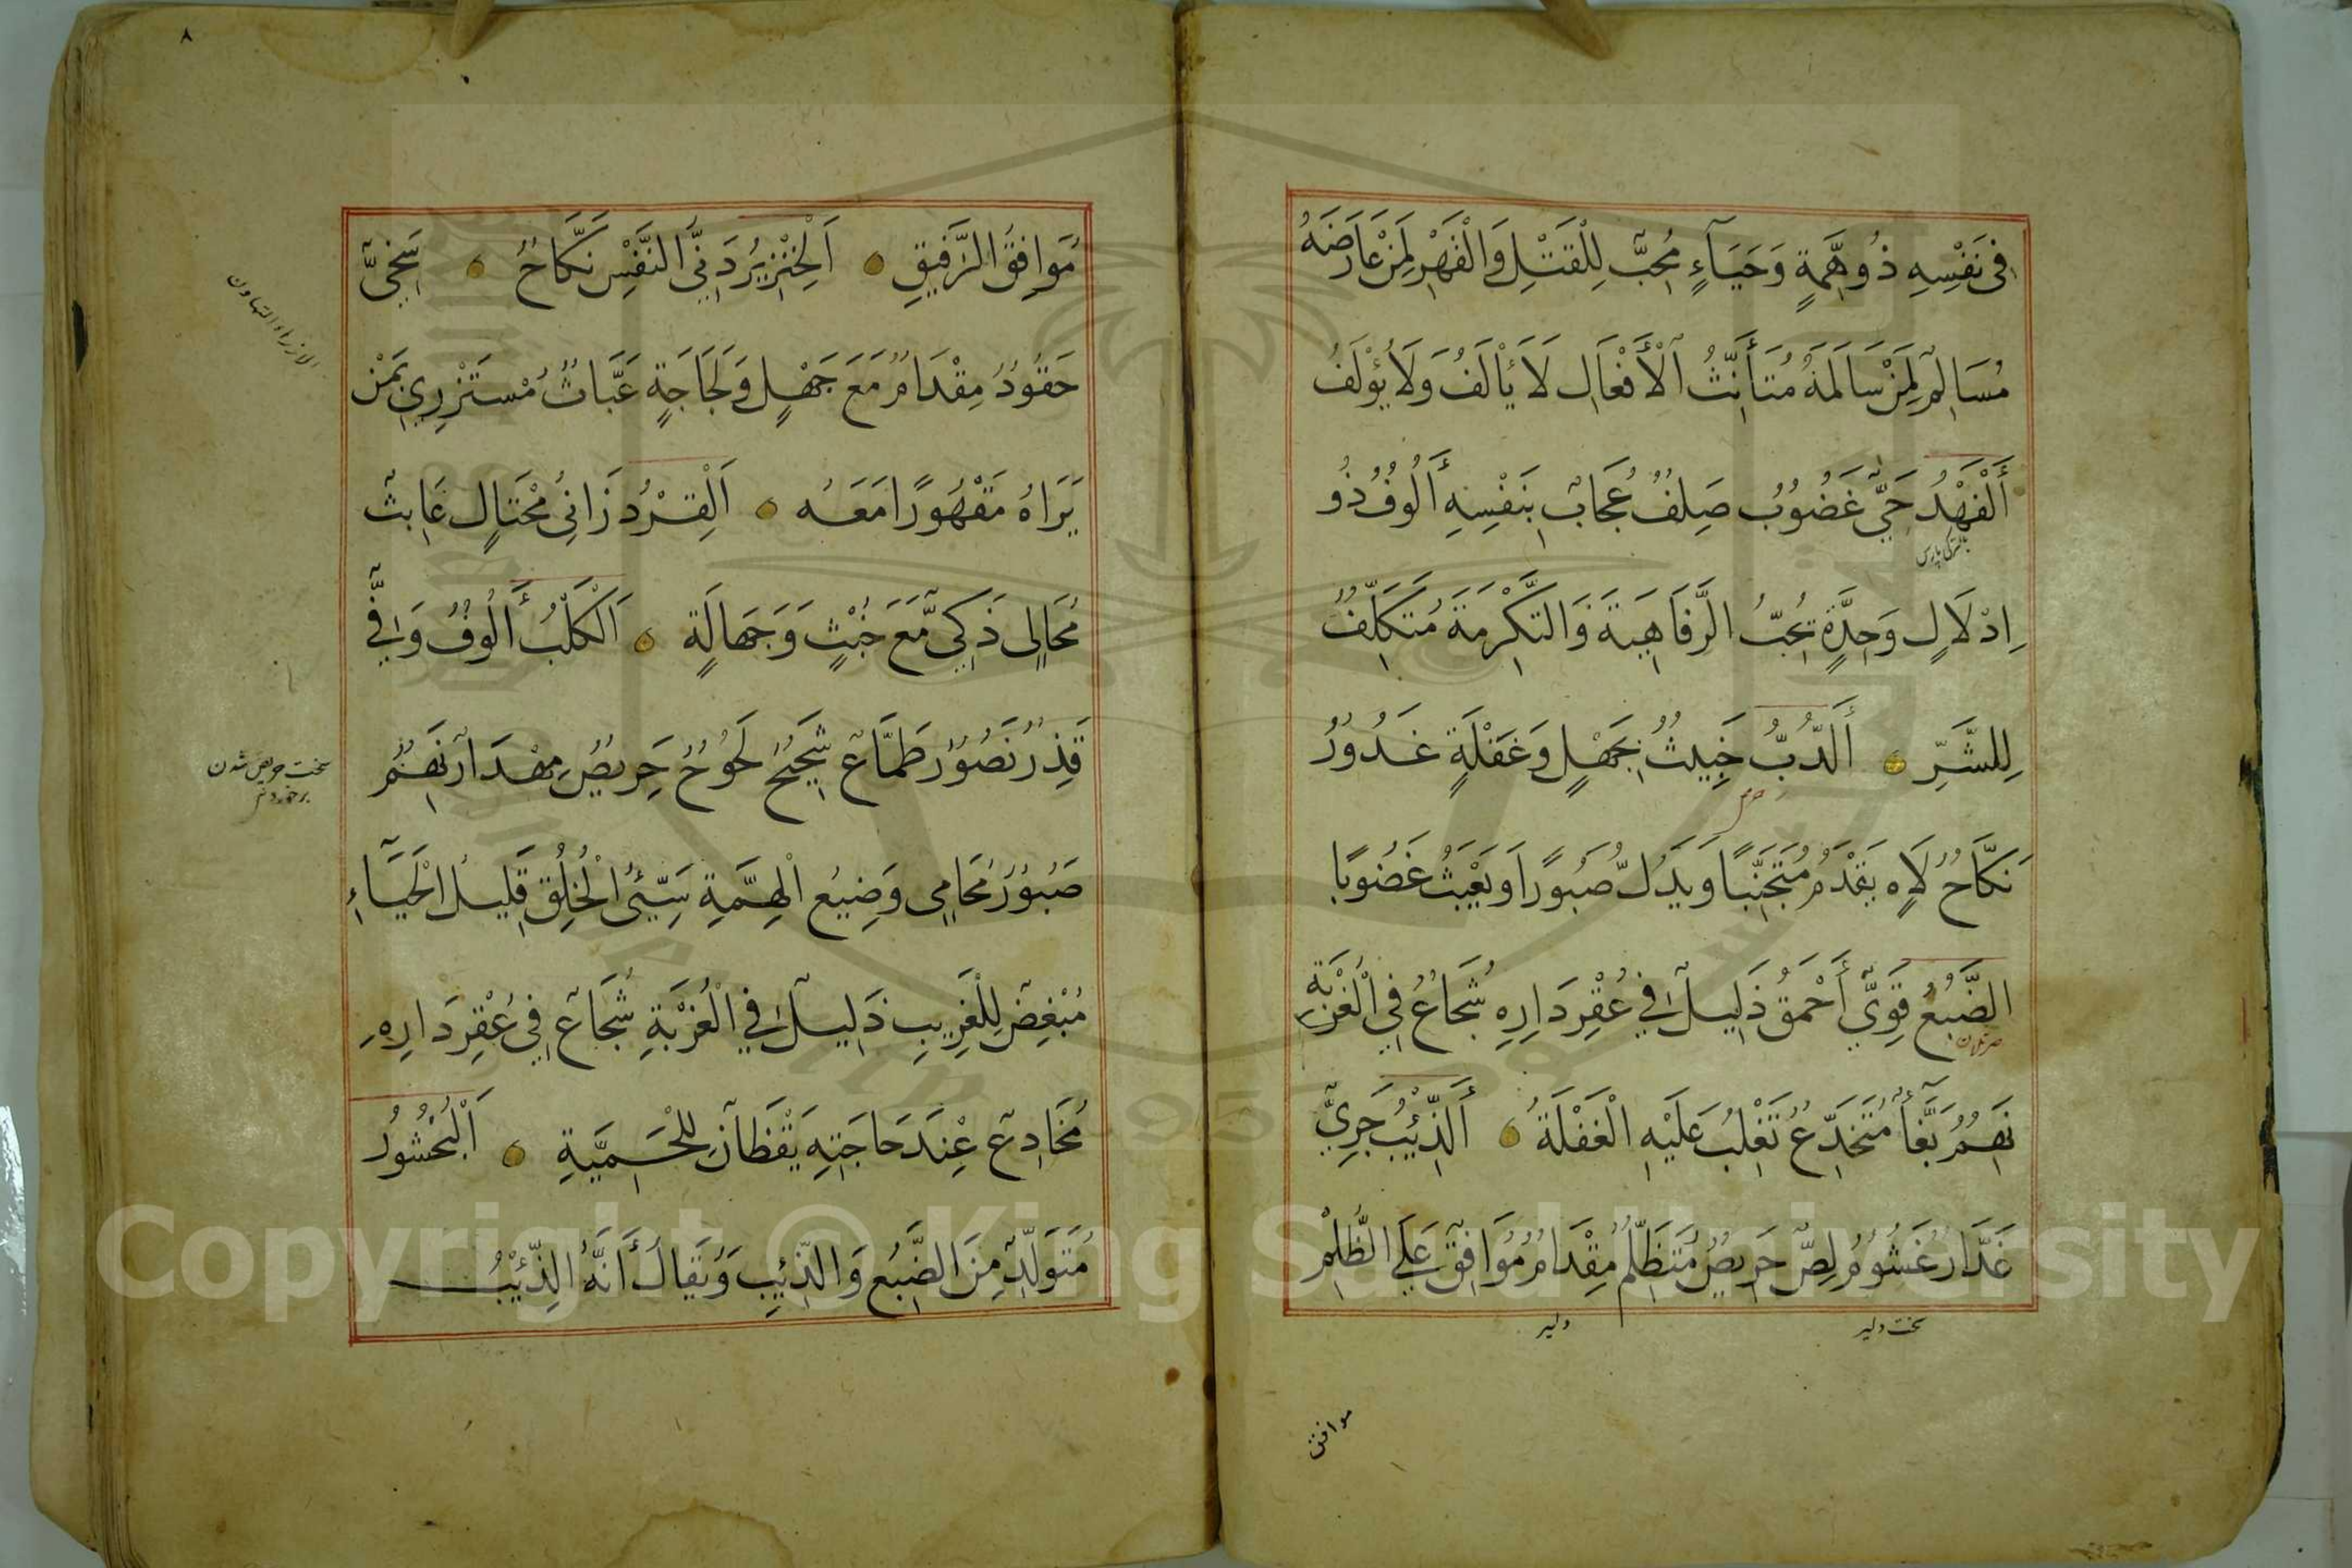 فِى نَفْسِهِ ذُو هِمَّةٍ وَحَيَآءٍ مُحِبٌّ لِلْقَتْلِ وَالْقَهْرِ لِمَنْ عَارَضَهُ
مُسَالِمٌ لِمَنْ سَالَمَهُ مُتَأَنِّثُ الْأَفْعَالِ لَا يَأْلَفُ وَلَا يُؤْلَفُ
أَلْفَهْدُ حَيِيٌّ غَضُوبٌ صَلِفٌ عُجَابٌ بِنَفْسِهِ أَلُوفٌ ذُو
بالتركى پارس
اِدْلَالٍ وَحِدَّةٍ يُحِبُّ الرَّفَاهِيَةَ وَالتَّكْرِمَةَ مُتَكَلِّفٌ
لِلشَّرِّ أَلدُّبُّ خَبِيثٌ بِجَهْلٍ وَغَفْلَةٍ غَدُورٌ
خرس
نَكَّاحٌ لَاهٍ يَقْدَمُ مُتَجَنِّبًا وَيَدُلُّ صَبُورًا وَيَعْبَثُ غَضُوبًا
الضَّبُعُ قَوِيٌّ أَحْمَقُ ذَلِيلٌ فِي عُقْرِ دَارِهِ شُجَاعٌ فِي الْغُرْبَةِ
صرتلان
نَهِمٌ بَغَّآءٌ مُتَخَدِّعٌ تَغْلِبُ عَلَيْهِ الْغَفْلَةُ أَلذِّئْبُ جَرِيٌّ
غَدَّارٌ غَشُومٌ لِصٌّ حَرِيصٌ مُتَظَلِّمٌ مِقْدَامٌ مُوَافِقٌ عَلَى الظُّلْمِ
سخت دلير
دلير
موافق
٨
مُوَافِقُ الرَّفِيقِ اَلْخِنْزِيرُ دَنِيُّ النَّفْسِ نَكَّاحٌ سَخِيٌّ
حَقُودٌ مِقْدَامٌ مَعَ جَهْلٍ وَلَجَاجَةٍ عَبَّاثٌ مُسْتَزْرِي بِمَنْ
الازراء التهاون
يَرَاهُ مَقْهُورًا مَعَهُ اَلْقِرْدُ زَانِي مُحْتَالٍ عَابِثٌ
مُحَالِي ذَكِيٌّ مَّعَ خُبْثٍ وَجَهَالَةٍ اَلْكَلْبُ أَلُوفٌ وَافِيٌّ
قَذِرٌ نَصُورٌ طَمَّاعٌ شَحِيحٌ لَحُوحٌ حَرِيصٌ مِهْدَارٌ نَهِمٌ
سخت حريص شدن
بر خوردنى
صَبُورٌ مُحَامِى وَضِيعُ الْهِمَّةِ سَيِّئُ الْخُلُقِ قَلِيلُ الْحَيَآءِ
مُبْغِضٌ لِلْغَرِيبِ ذَلِيلٌ فِي الْغُرْبَةِ شُجَاعٌ فِي عُقْرِ دَارِهِ
مُخَادِعٌ عِنْدَ حَاجَتِهِ يَقْظَانٌ لِلْحَمِيَّةِ اَلْبُحْشُورُ
مُتَوَلِّدٌ مِنَ الضَّبُعِ وَالذِّئِبِ وَيُقَالُ أَنَّهُ الذِّئْبُ
Copyright © King Saud University